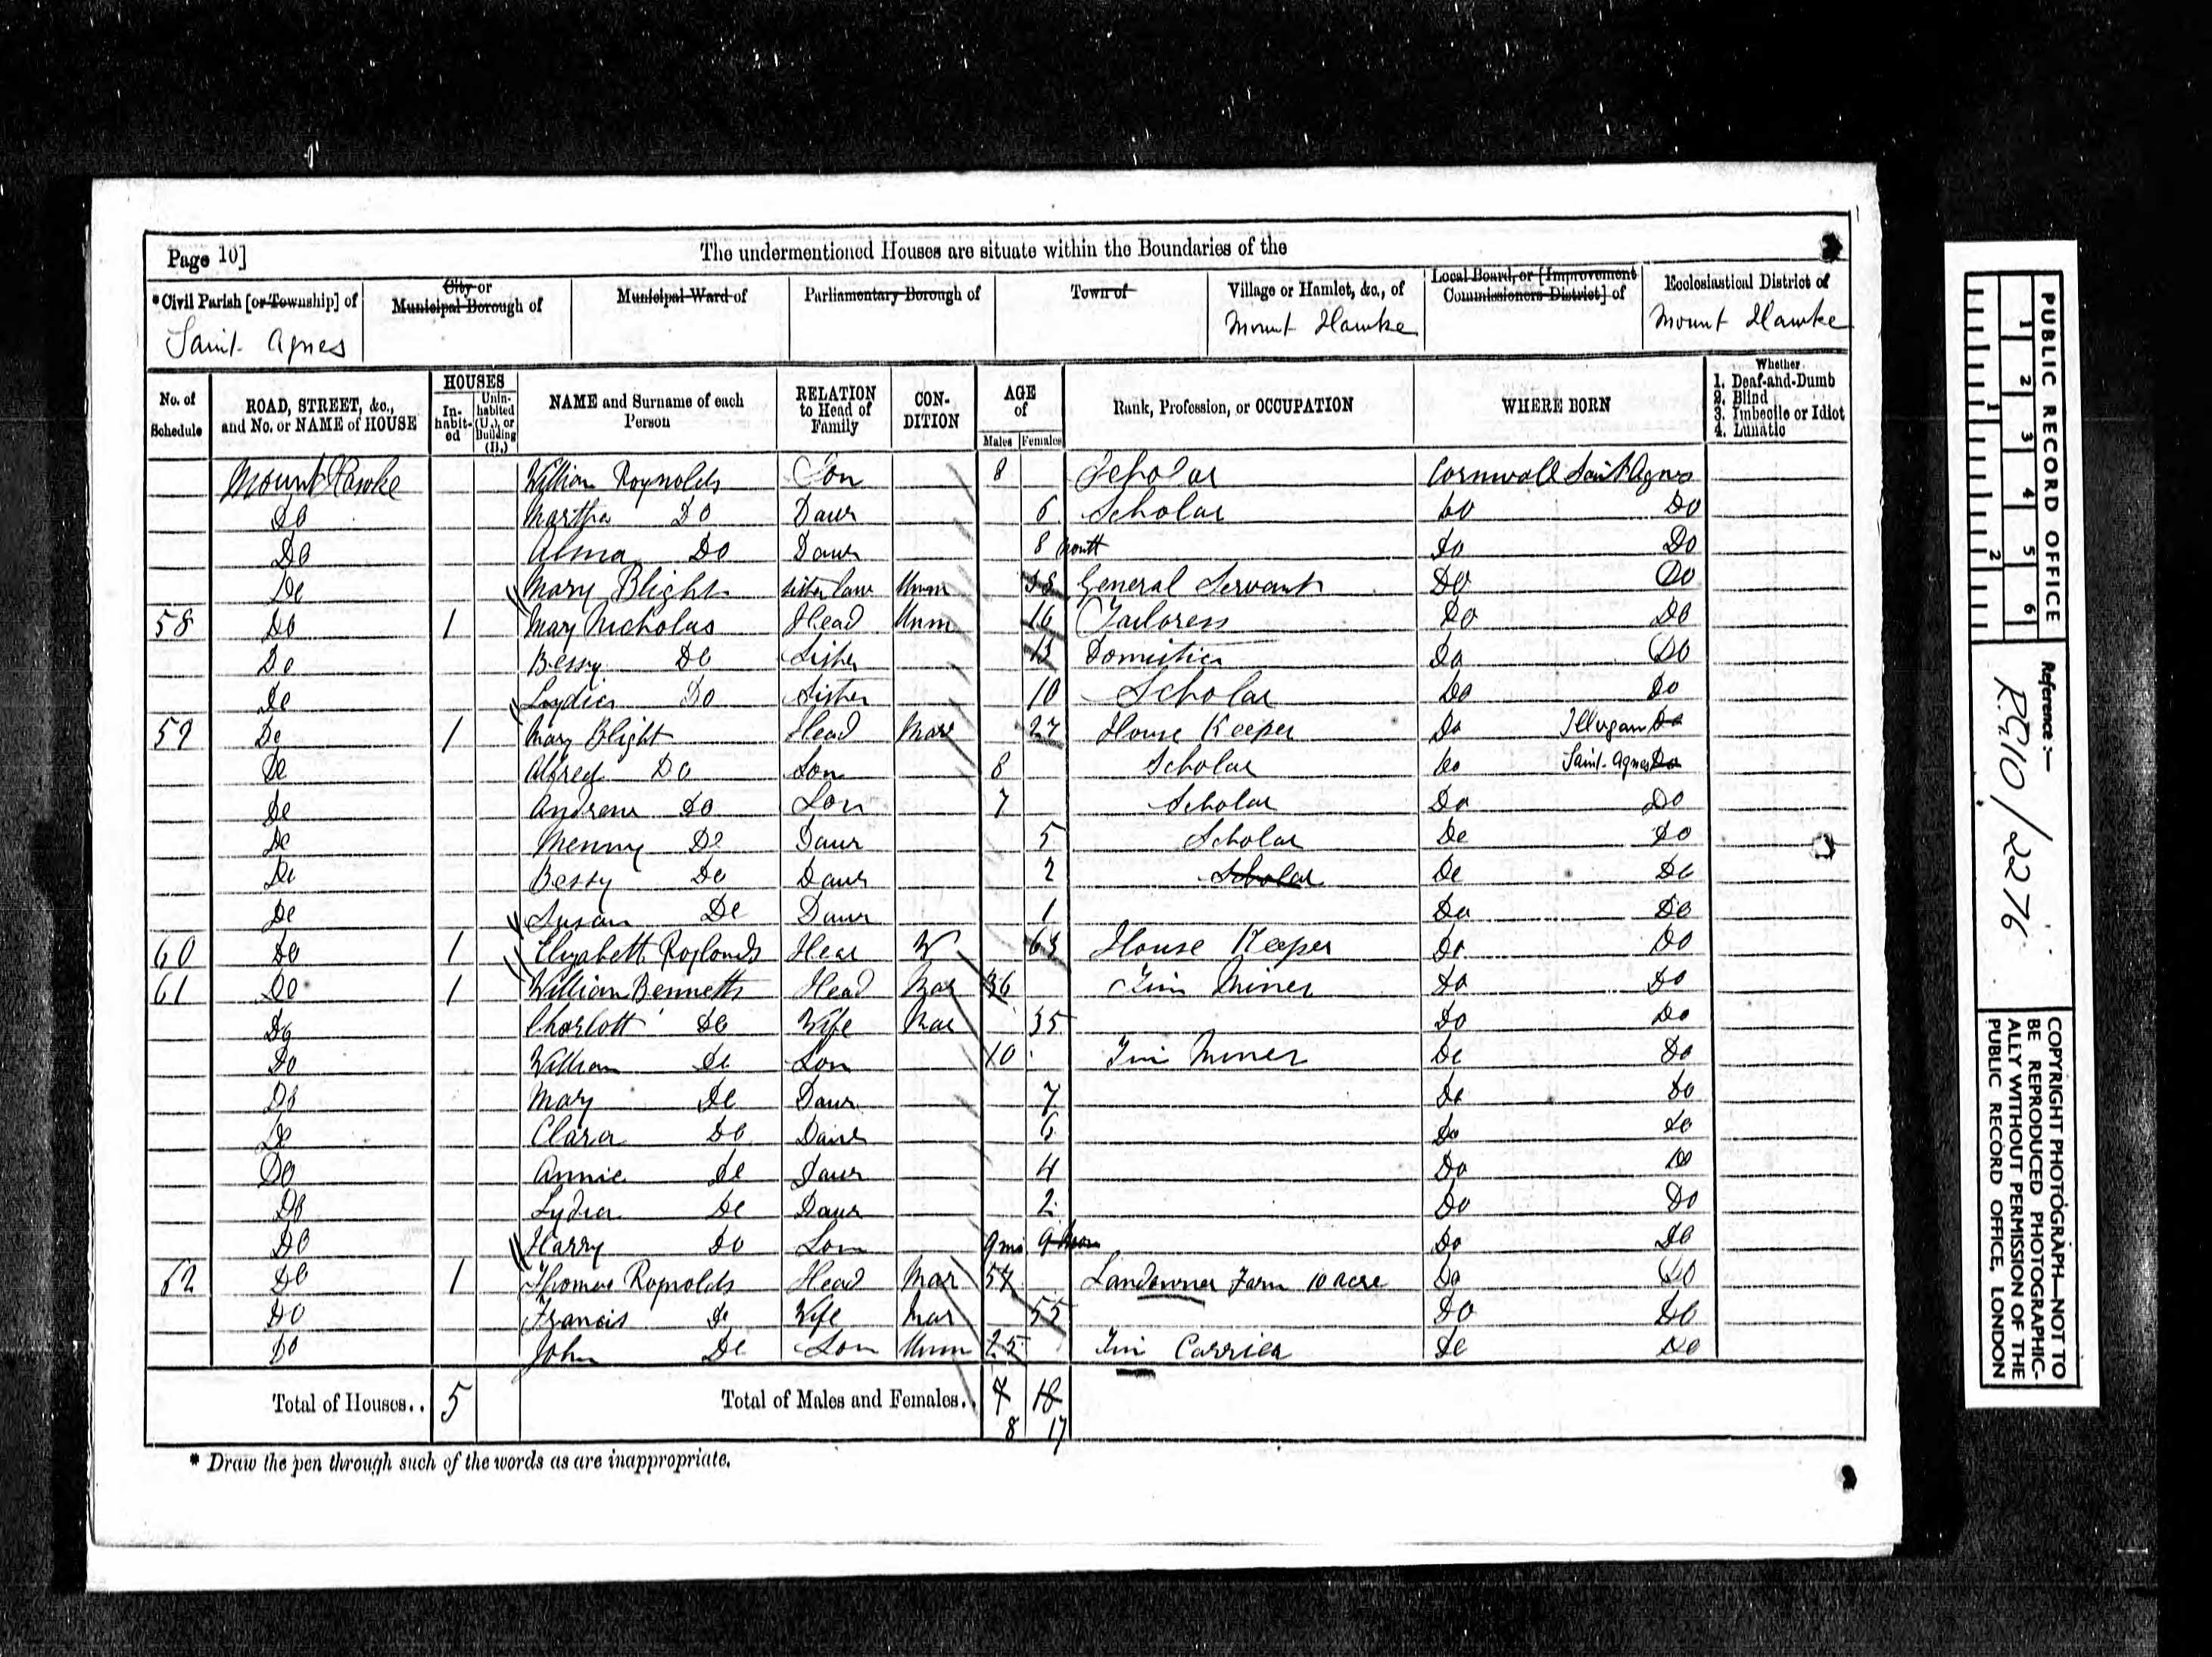 Page 10]
The undermentioned Houses are situate within the Boundaries of the
*Civil Parish [or Township] of
Saint Agnes
City or Municipal Borough of
Municipal Ward of
Parliamentary Borough of
Town of
Village or Hamlet, &c., of
Mount Hawke
Local Board, or [Improvement Commissioners District] of
Ecclesiastical District of
Mount Hawke
No. of Schedule
ROAD, STREET, &c., and No. or NAME of HOUSE
HOUSES
Inhabited
Uninhabited (U.), or Building (B.)
NAME and Surname of each Person
RELATION to Head of Family
CONDITION
AGE of
Males Females
Rank, Profession, or OCCUPATION
WHERE BORN
Whether
1. Deaf-and-Dumb
2. Blind
3. Imbecile or Idiot
4. Lunatic
Mount Hawke William Roynolds Son 8 Scholar Cornwall Saint Agnes
Do Martha Do Daur 6 Scholar Do Do
Do Alma Do Daur 8 month Do Do
Do Mary Blight Unm General Servant Do Do
58 Do 1 Mary Nicholas Head Unm 16 Tailoress Do Do
Do Bessy Do Sister 13 Domistic Do Do
Do Lydia Do Sister 10 Scholar Do Do
59 Do 1 Mary Blight Head Mar 27 House Keeper Do Illogan Do
Do Alfred Do Son 8 Scholar Do Saint Agnes Do
Do Andrew Do Son 7 Scholar Do Do
Do Menny Do Daur 5 Scholar Do Do
Do Bessy Do Daur 2 Scholar Do Do
Do Susan Do Daur 1 Do Do
60 Do 1 Elizabeth Head W 63 House Keeper Do Do
61 Do 1 William Bennetts Head Mar 36 Tin Miner Do Do
Do Charlott Do Wife Mar 35 Do Do
Do William Do Son 10 Tin Miner Do Do
Do Mary Do Daur 7 Do Do
Do Clara Do Daur 6 Do Do
Do Annie Do Daur 4 Do Do
Do Lydia Do Daur 2 Do Do
Do Harry Do Son 9 mo 9 Do Do
62 Do 1 Thomas Roynolds Head Mar 57 Landowner Farm 10 acre Do Do
Do Francis Do Wife Mar 55 Do Do
Do John Do Son Unm 25 Tin Carrier Do Do
Total of Houses.. 5
Total of Males and Females.. 7 18
8 17
* Draw the pen through such of the words as are inappropriate.
PUBLIC RECORD OFFICE
1 2 3 4 5 6
1 2
Reference:—
R.G.10/2276
COPYRIGHT PHOTOGRAPH—NOT TO
BE REPRODUCED PHOTOGRAPHIC-
ALLY WITHOUT PERMISSION OF THE
PUBLIC RECORD OFFICE, LONDON